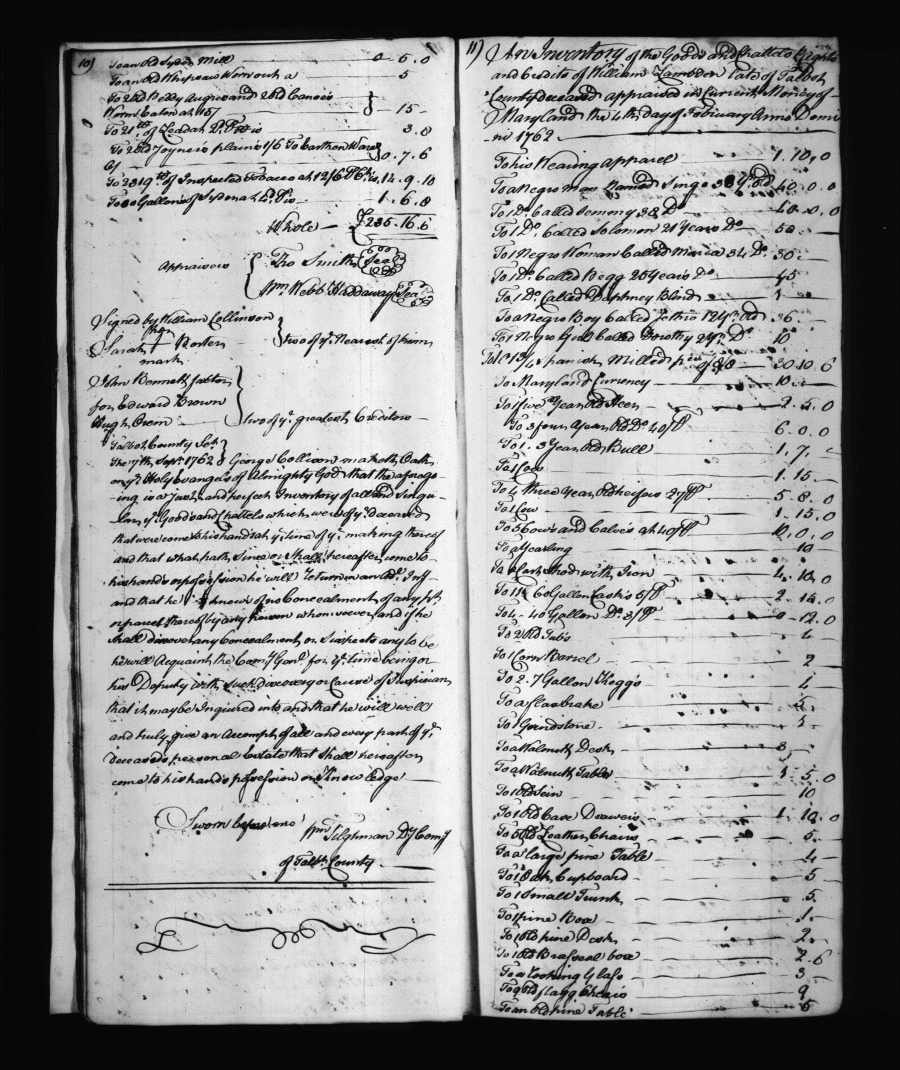 10)
To an old Syder Mill 0 . 5 . 0
To an old Whipsaw Worn out a 5
To 2 old Beddy Augres and 2 old Canoes
Worn Eaten at 15/ } — 15 —
To 21 lb of Leadah Do. 3 . 8
To 2 old Joyners plains 1/6 To Earthen Ware
6/ } 0 . 7 . 6
To 2319 lb of Inspected Tobacco at 12/6 14 . 9 . 10
To 80 Gallons of Syder at 4d. 1 . 6 . 8
Whole — £ 235 . 16 . 6
Appraisers { Tho Smith (Seal)
Wm Webb Haddaway (Seal)
Signed by William Collinson
her
Sarah + Porter } two of ye Nearest of kinn
mark
John Bennett factor
for Edward Brown
Hugh Orem } two of ye greatest Creditors —
Talbot County Sct.
The 7th Sept. 1762 } George Collison maketh Oath
on ye Holy Evangels of Almighty God that the aforego-
ing is a just and perfect Inventory of all and Singu-
lar ye Goods and Chattels which were of ye deceased
that were come to his hands at ye time of ye making thereof
and that what hath Since or Shall hereafter come to
his hands or possession he will return in an
and that he knows of no Concealment of any pt.
or parcel thereof by any person whomsoever and if he
shall discover any Concealment or Suspects any to be
he will Acquaint the Comy. Genl. for ye time being or
his Deputy with Such discovery or Cause of Suspician
that it may be Inquired into and that he will well
and truly give an Accompt of all and every part of ye
deceased's personal Estate that Shall hereafter
come to his hands possession or Knowledge —
Sworn before me
Wm Tilghman Dy Comy
of Talbt. County
11) An Inventory of the Goods and Chattels Rights
and Credits of William Lambden late of Talbot
County deceased appraised in Current Money of
Maryland the 4th day of Febiuary Anno Domi
ni 1762 —
To his Wearing Apparel 1 . 10 . 0
To a Negro man Named Singo 38 Yrs. Old 40 . 0 . 0
To 1 Do. Called Jemmy 38 Do 40 . 0 . 0
To 1 Do. Called Solomon 21 Years Do 50 —
To 1 Negro Woman Called Maria 34 Do. 35 —
To 1 Do. Called Begg 25 Years Do 45
To 1 Do. Called Daphney Blind 1 —
To a Negro Boy Called 12 Yrs. Old 36 —
To 1 Negro Girl Called Dorothy 2 Yrs. Do 10
Spanish Milled 30 . 10 . 6
To Maryland Currency 10 . —
To 1 five Year Old Steer 2 . 5 . 0
To 3 four Year Old Do 40/ 6 . 0 . 0
To 1 . 3 Year Old Bull 1 . 7 . —
To 1 Cow 1 . 15 . —
To 4 three Year Old heifers 27/ 5 . 8 . 0
To 1 Cow 1 . 15 . 0
To 5 Cows and Calves at 40/ 10 . 0 . 0
To a Yearling 10 —
To a Cart Shod with Iron 4 . 10 . 0
60 Gallon Casks 5/ 2 . 14 . 0
To 4 - 40 Gallon Do. 3/ 0 - 12 . 0
To 2 Old Tubs 4
To 1 Corn Barrel 2
To 2 . 7 Gallon Keggs 4
To a flax brake 3 .
To 1 Grindstone 3 .
To a Walnutt Desk 3 —
To a Walnutt Table 1 . 5 . 0
To 1 Old Sein 10
To 1 Old Case Drawers 1 . 10 . 0
To 5 Old Leather Chairs 5 .
To a large pine Table 4 —
To 1 Oak Cupboard 5 —
To 1 Small Trunk 5 .
To 1 pine Box 1 .
To 1 Old pine Desk 2 . —
To 1 Old box 2 . 6
To a Looking Glass 3 —
To 9 Old flagg Chairs 9
To an Old pine Table 5